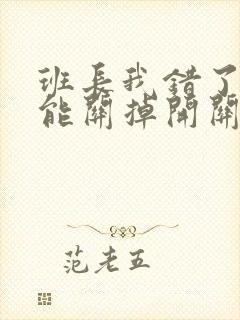 班長我錯了
能關掉開關
范老五